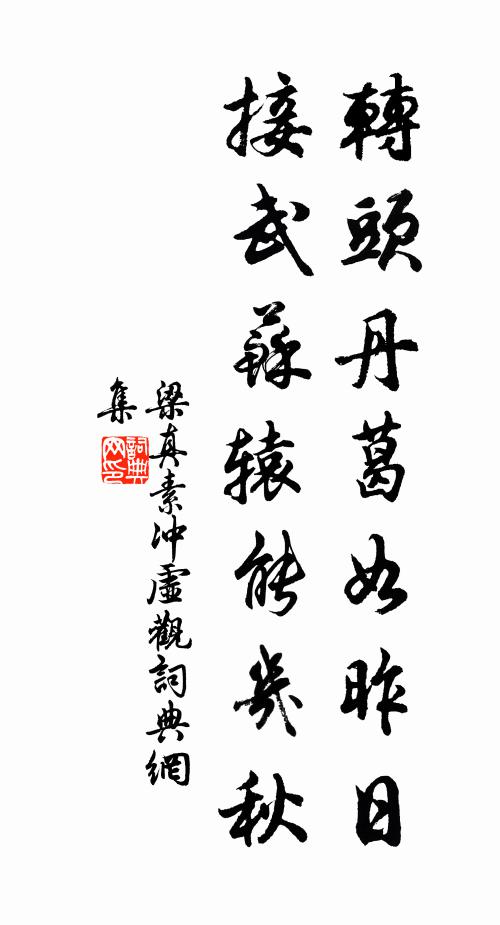 轉頭丹葛如昨日
接武蘇辕能幾秋
梁真素冲虛觀詞典網
集
詞典网印